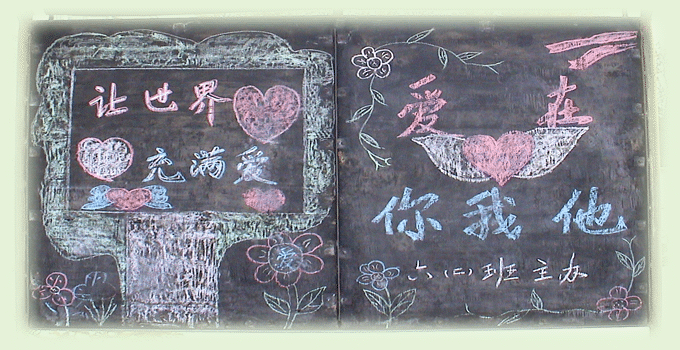 让世界
充满爱
爱在
你我他
六(二)班主办